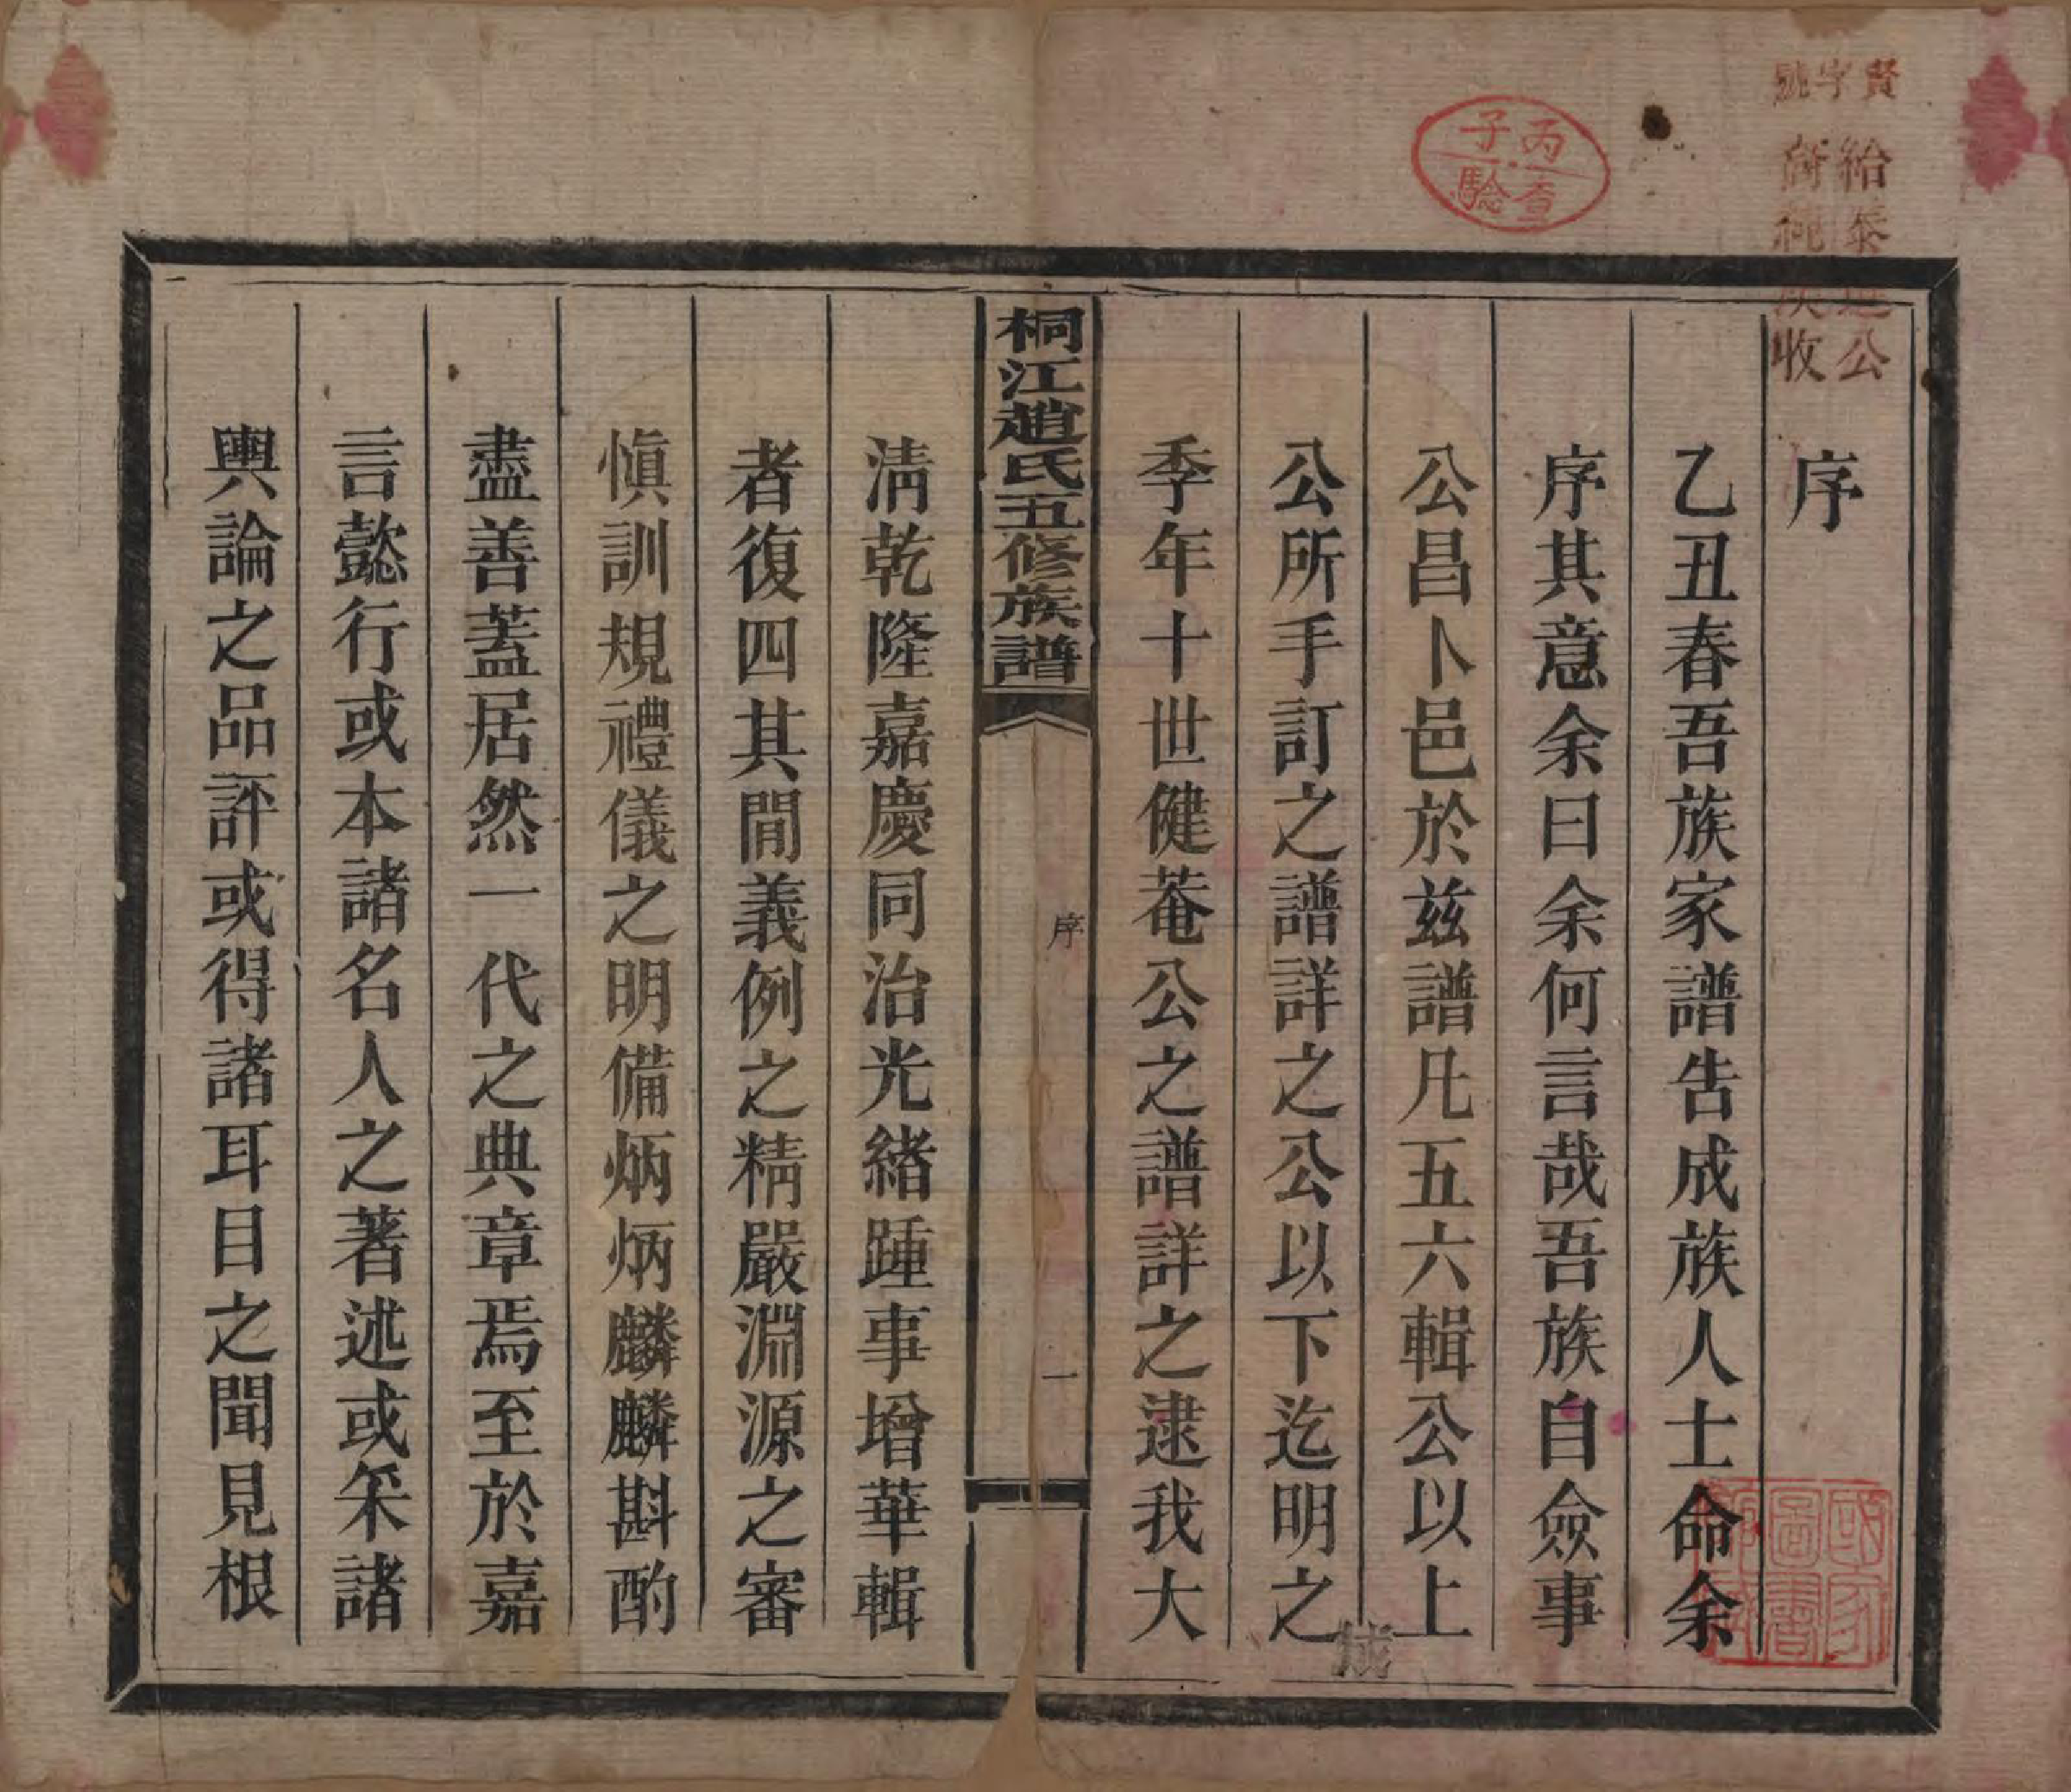 賢字號
紿泰進公
裔純族收
丙子
查驗
序
乙丑春吾族家譜告成族人士命余
序其意余曰余何言哉吾族自僉事
公昌卜邑於兹譜凡五六輯公以上
公所手訂之譜詳之公以下迄明之
季年十世健菴公之譜詳之逮我大
桐江趙氏五修族譜
序
一
淸乾隆嘉慶同治光緒踵事增華輯
者復四其間義例之精嚴淵源之審
愼訓規禮儀之明備炳炳麟麟斟酌
盡善蓋居然一代之典章焉至於嘉
言懿行或本諸名人之著述或采諸
輿論之品評或得諸耳目之聞見根